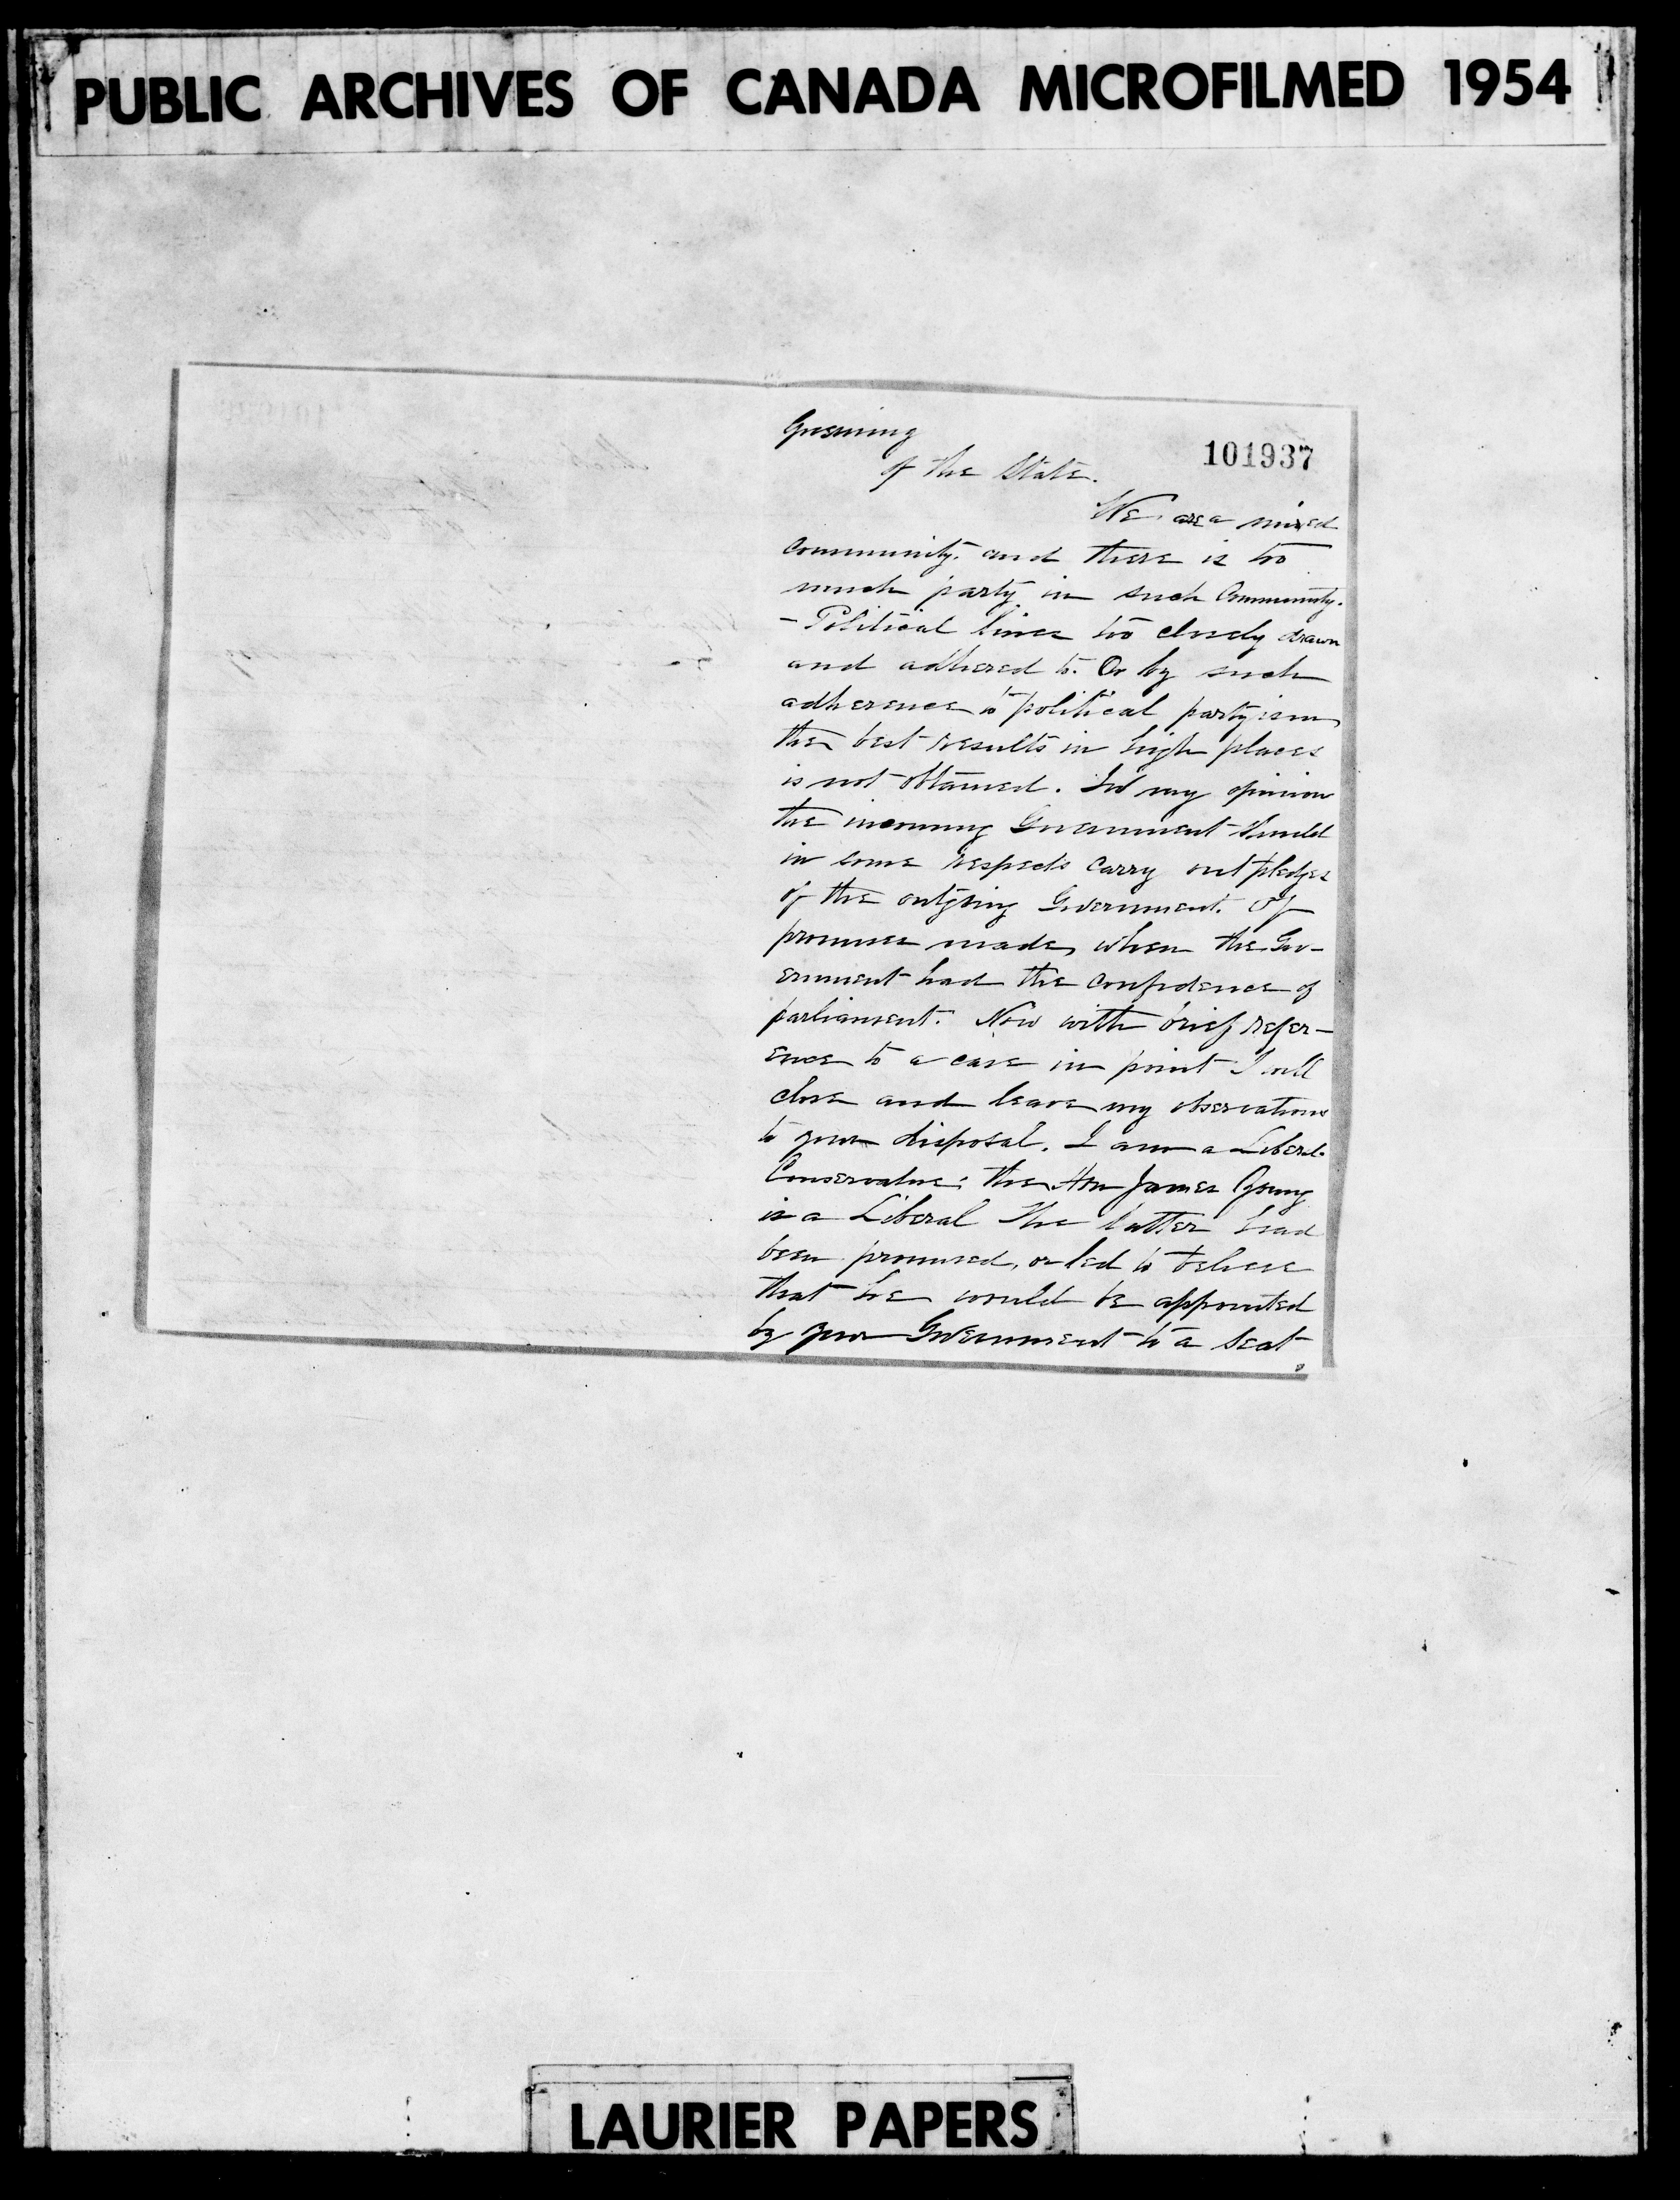 PUBLIC ARCHIVES OF CANADA MICROFILMED 1954
101937
of the State.
We are a mixed
community. and there is too
much party in such Community.
- Political lines too closely drawn
and adhered to. Or by such
adherence to political partyism
the best results in high places
is not obtained. In my opinion
the incoming Government should
in some respects carry out pledges
of the outgoing Government. Of
promises made, when the Gov-
ernment had the confidence of
parliament. Now with brief refer-
ence to a case in point I will
close and leave my observations
to your disposal. I am a Liberal-
Conservative: the Hon James Young
is a Liberal The latter had
been promised, or led to believe
that he would be appointed
by your Government to a seat
LAURIER PAPERS